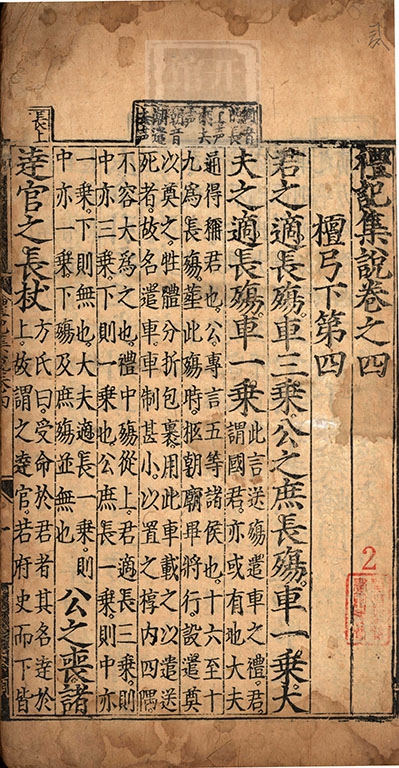 禮記集說卷之四
檀弓下第四
君之適長殤車三乗公之庶長殤車一乗大
夫之適長殤車一乗
此言送殤遣車之禮君
謂國君亦或有地大夫
通得稱君也公專言五等諸侯也十六至十
九為長殤葬此殤時柩朝廟畢將行設遣奠
以奠之牲體分折包裹用此車載之以遣送
死者故名遣車車制甚小以置之槨內四隅
不容大為之也禮中殤從上君適長三乗則
中亦三乗下則一乗也公庶長一乗則中亦
一乗下則無也大夫適長一乗則
中亦一乗下殤及庶殤並無也
公之喪諸
達官之長杖
方氏曰受命於君者其名達於
上故謂之達官若府史而下皆
長上
2